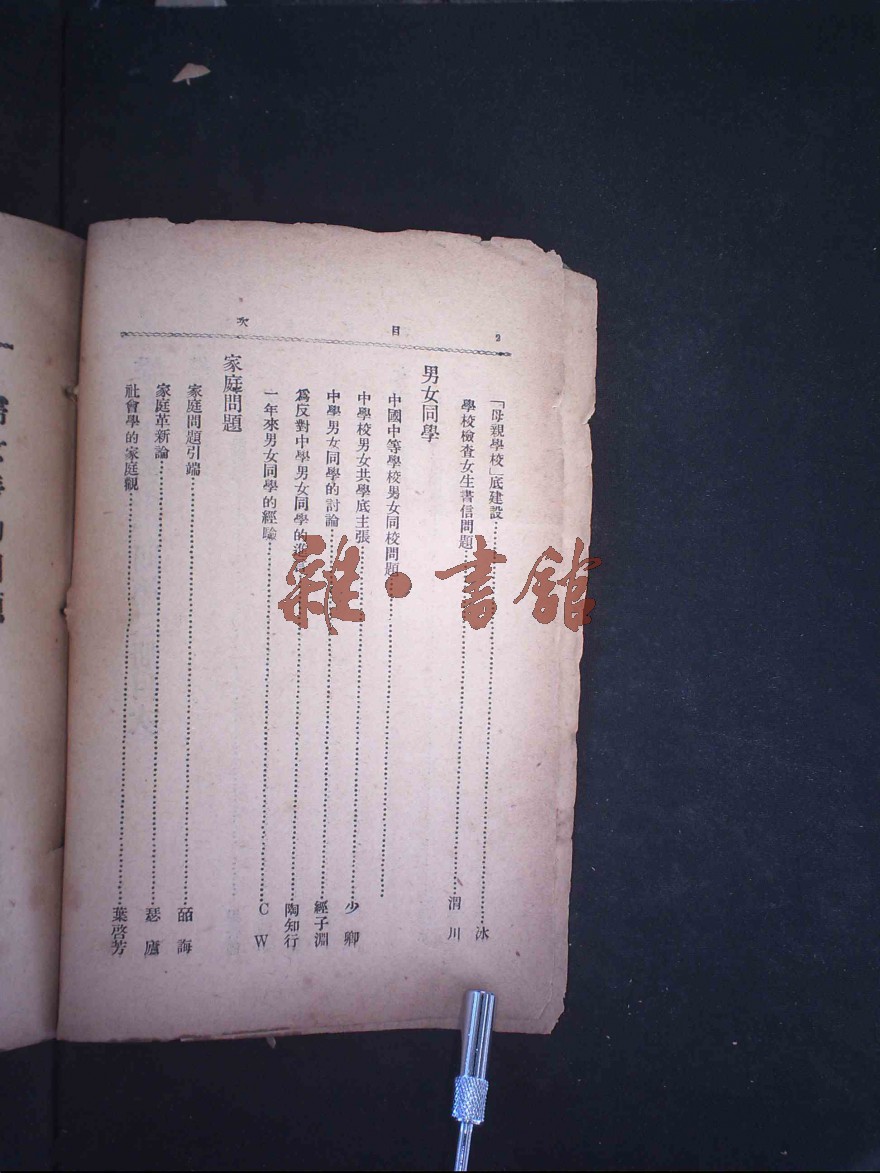 2
目
次
「母親學校」底建設……冰
學校檢査女生書信問題……渭川
男女同學
中國中等學校男女同校問題……
中學校男女共學底主張……少卿
中學男女同學的討論……經子淵
爲反對中學男女同學的進……陶知行
一年來男女同學的經驗……C W
家庭問題
家庭問題引端……皕誨
家庭革新論……瑟廬
社會學的家庭觀……葉啓芳
雜·書館